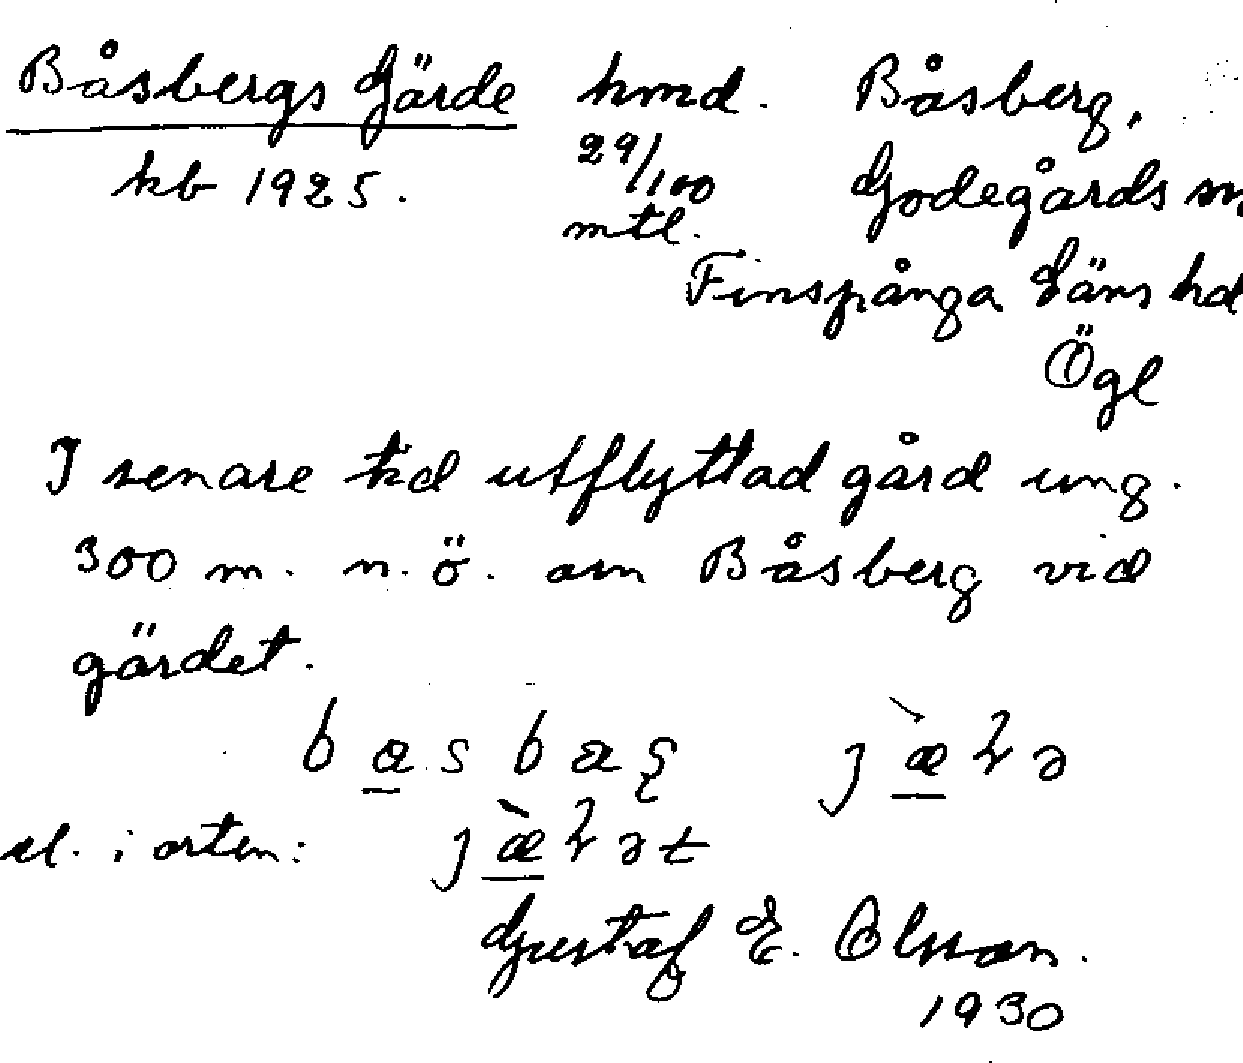 Båsbergs Gärde hmd. Båsberg,
kb 1925. 29/100 mtl. Godegårds sn,
Finspånga Läns hd
Ögl
I senare tid utflyttad gård ung.
300 m. n.ö. om Båsberg vid
gärdet.
el. i orten:
Gustaf E. Olsson.
1930